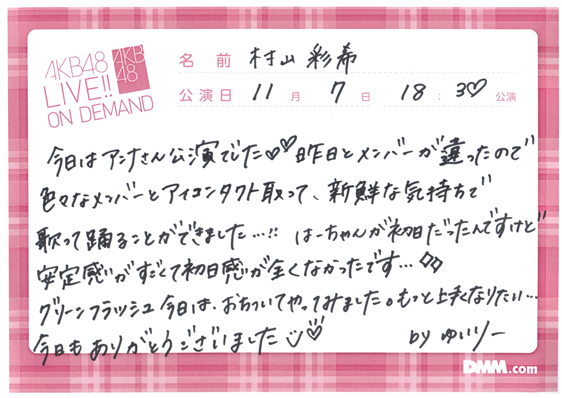 AKB48
LIVE!!
ON DEMAND
AKB
48
名前 村山彩希
公演日 11月7日 18:30公演
今日はアンナさん公演でした♡♡昨日とメンバーが違ったので
色々なメンバーとアイコンタクト取って、新鮮な気持ちで
歌って踊ることができました…!! はーちゃんが初日だったんですけど
安定感がすごくて初日感が全くなかったです…◇◇
グリーンフラッシュ今日は、おちついてやってみました。もっと上手くなりたい…
今日もありがとうございました♡ by ゆいりー
DMM.com